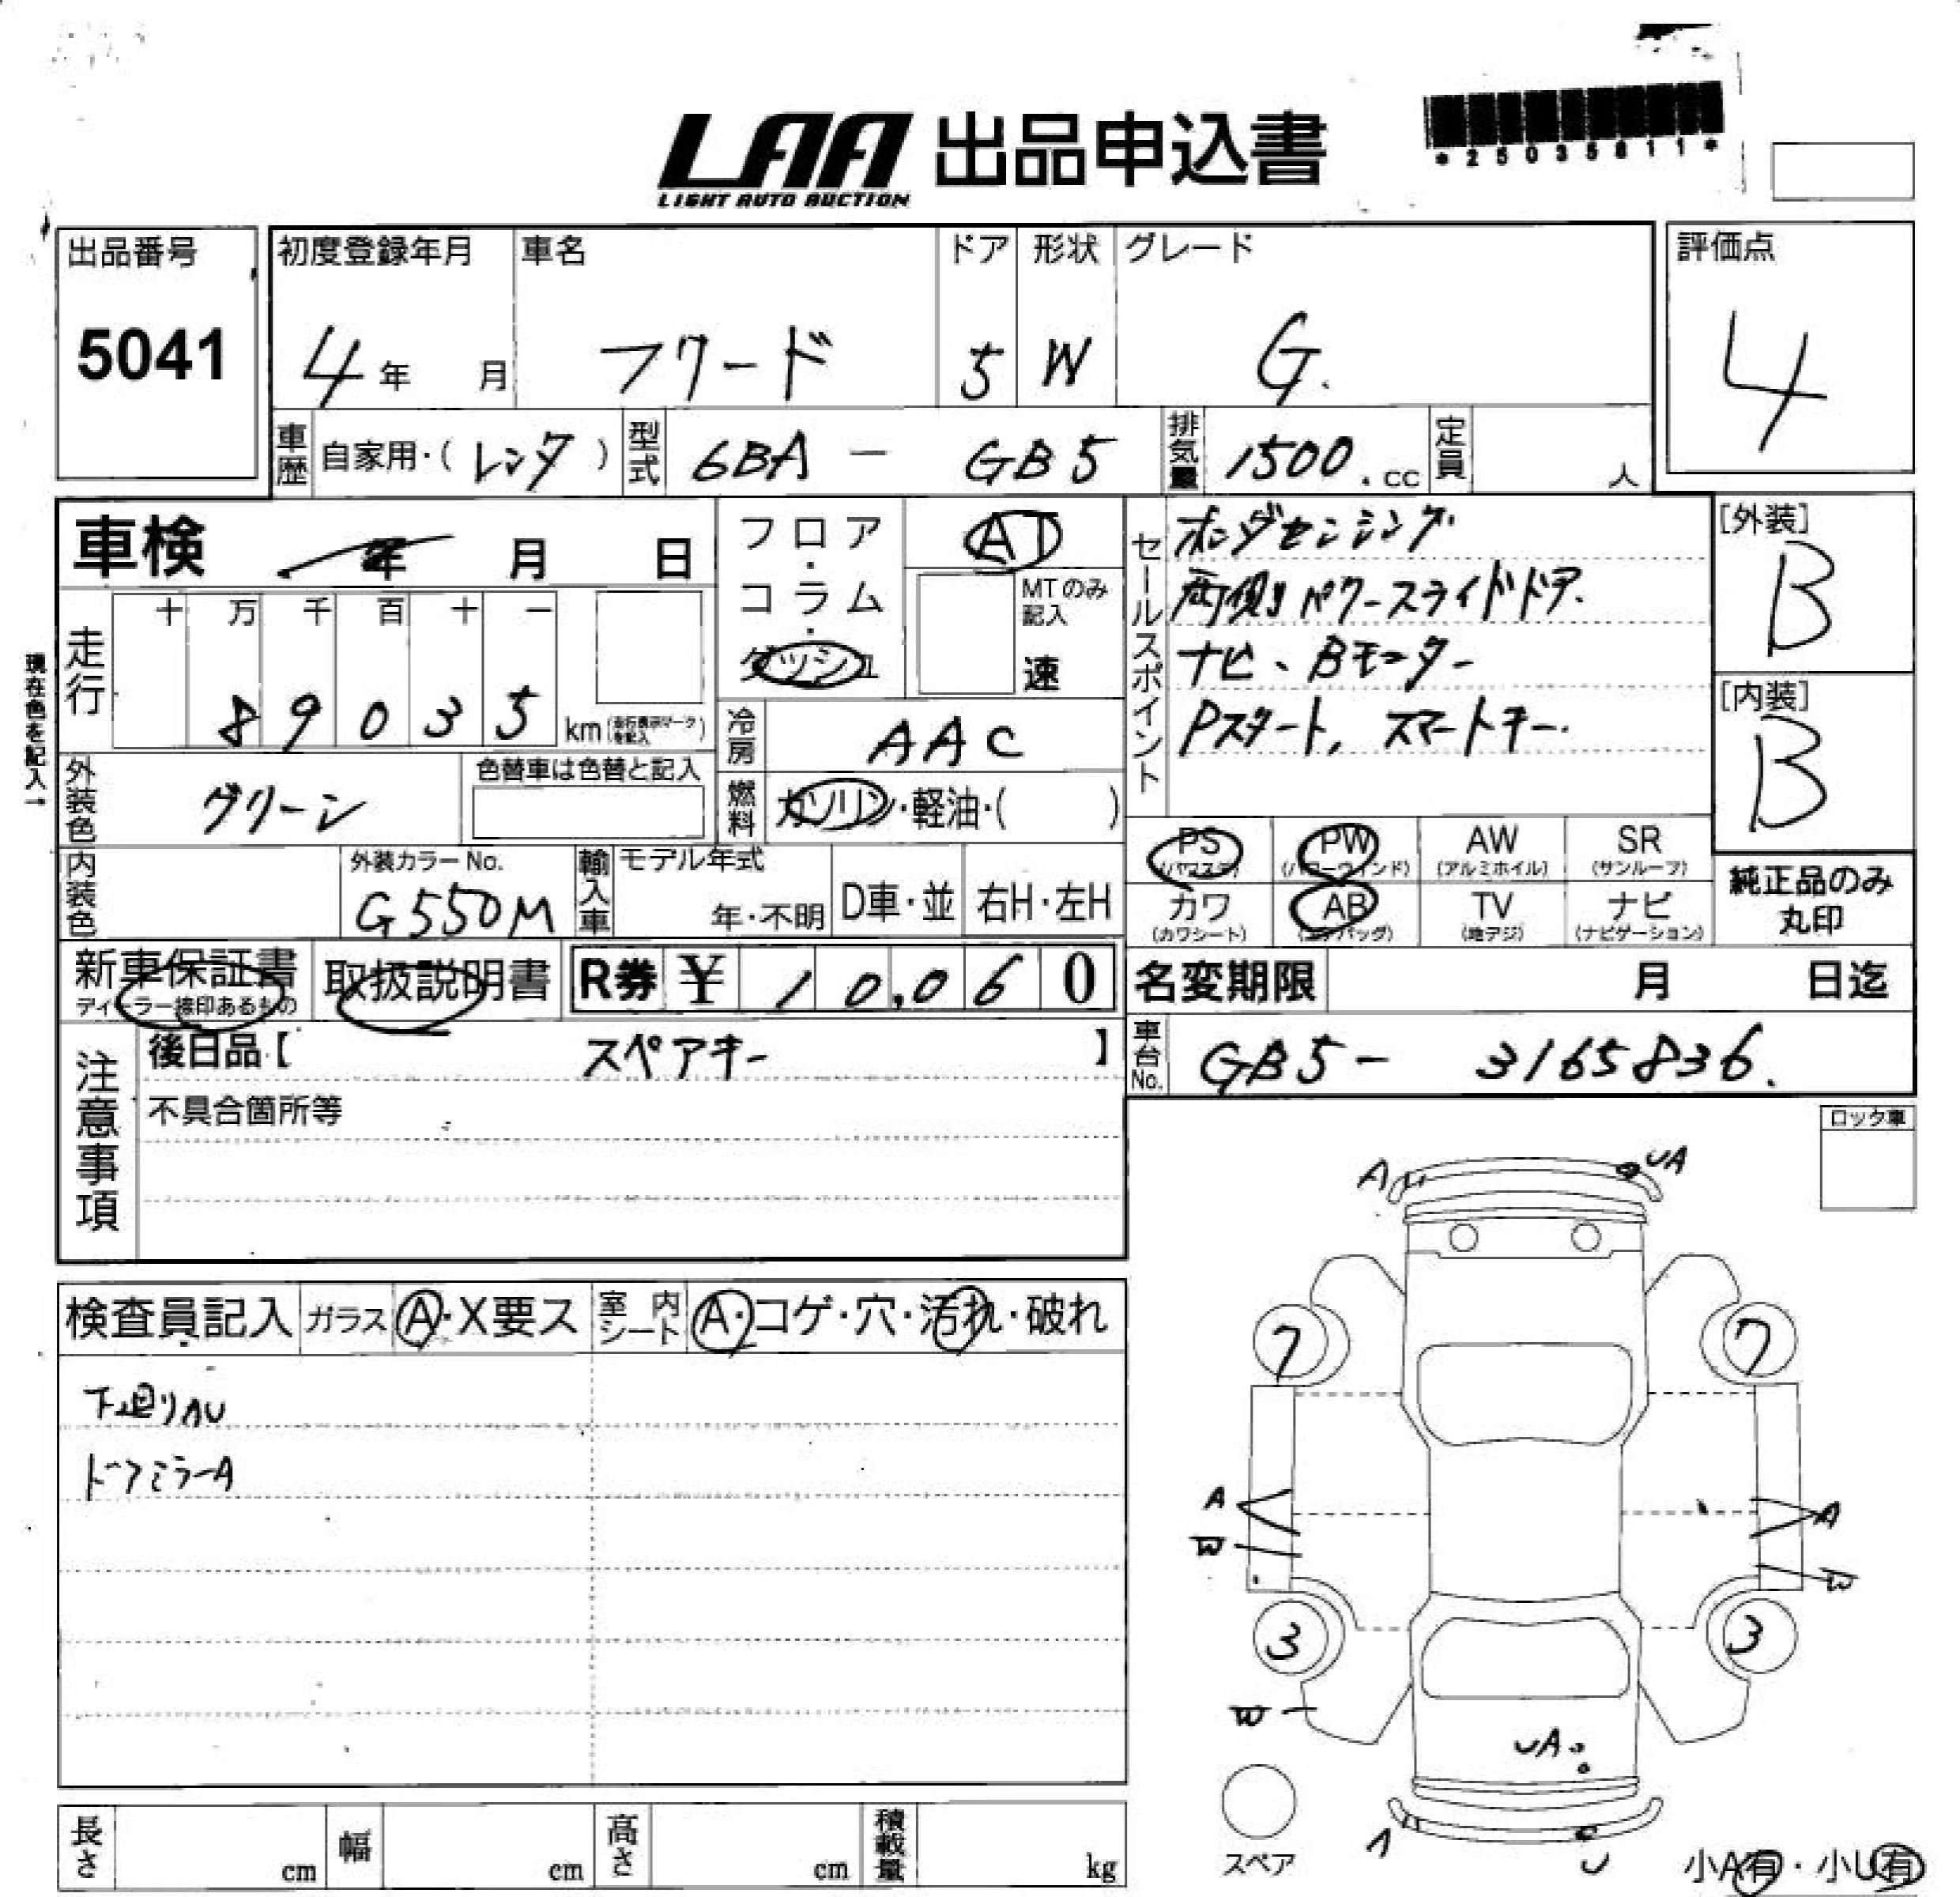 LAA 出品申込書
LIGHT AUTO AUCTION
*25035811*
出品番号
5041
初度登録年月
4年 月
車名
フリード
ドア
5
形状
W
グレード
G.
評価点
4
車歴 自家用・( レンタ )
型式 6BA - GB5
排気量 1500.cc
定員 人
車検 年 月 日
フロア・コラム・ダッシュ
AT
MTのみ記入
速
現在色を記入→
走行 十 万 千 百 十 一
89035 km (走行表示マークを記入)
冷房 AAC
燃料 ガソリン・軽油・( )
セールスポイント
ホンダセンシング
両側パワースライドドア.
ナビ、Bモニター
Pスタート, スマートキー.
[外装]
B
[内装]
B
外装色 グリーン
色替車は色替と記入
内装色
外装カラーNo.
G550M
輸入車 モデル年式
年・不明
D車・並
右H・左H
PS (パワステ)
PW (パワーウィンド)
AW (アルミホイル)
SR (サンルーフ)
カワ (カワシート)
AB (エアバッグ)
TV (地デジ)
ナビ (ナビゲーション)
純正品のみ
丸印
新車保証書
ディーラー捺印あるもの
取扱説明書
R券 ¥ 10,060
名変期限 月 日迄
注意事項
後日品【 スペアキー 】
不具合箇所等
車台No. GB5- 3165836.
ロック車
検査員記入
ガラス A・X要ス
室内シート A・コゲ・穴・汚れ・破れ
下廻りAU
ドアミラーA
A
UA
7
7
A
A
W
W
3
3
W
UA
A
U
スペア
小A有・小U有
長さ cm
幅 cm
高さ cm
積載量 kg